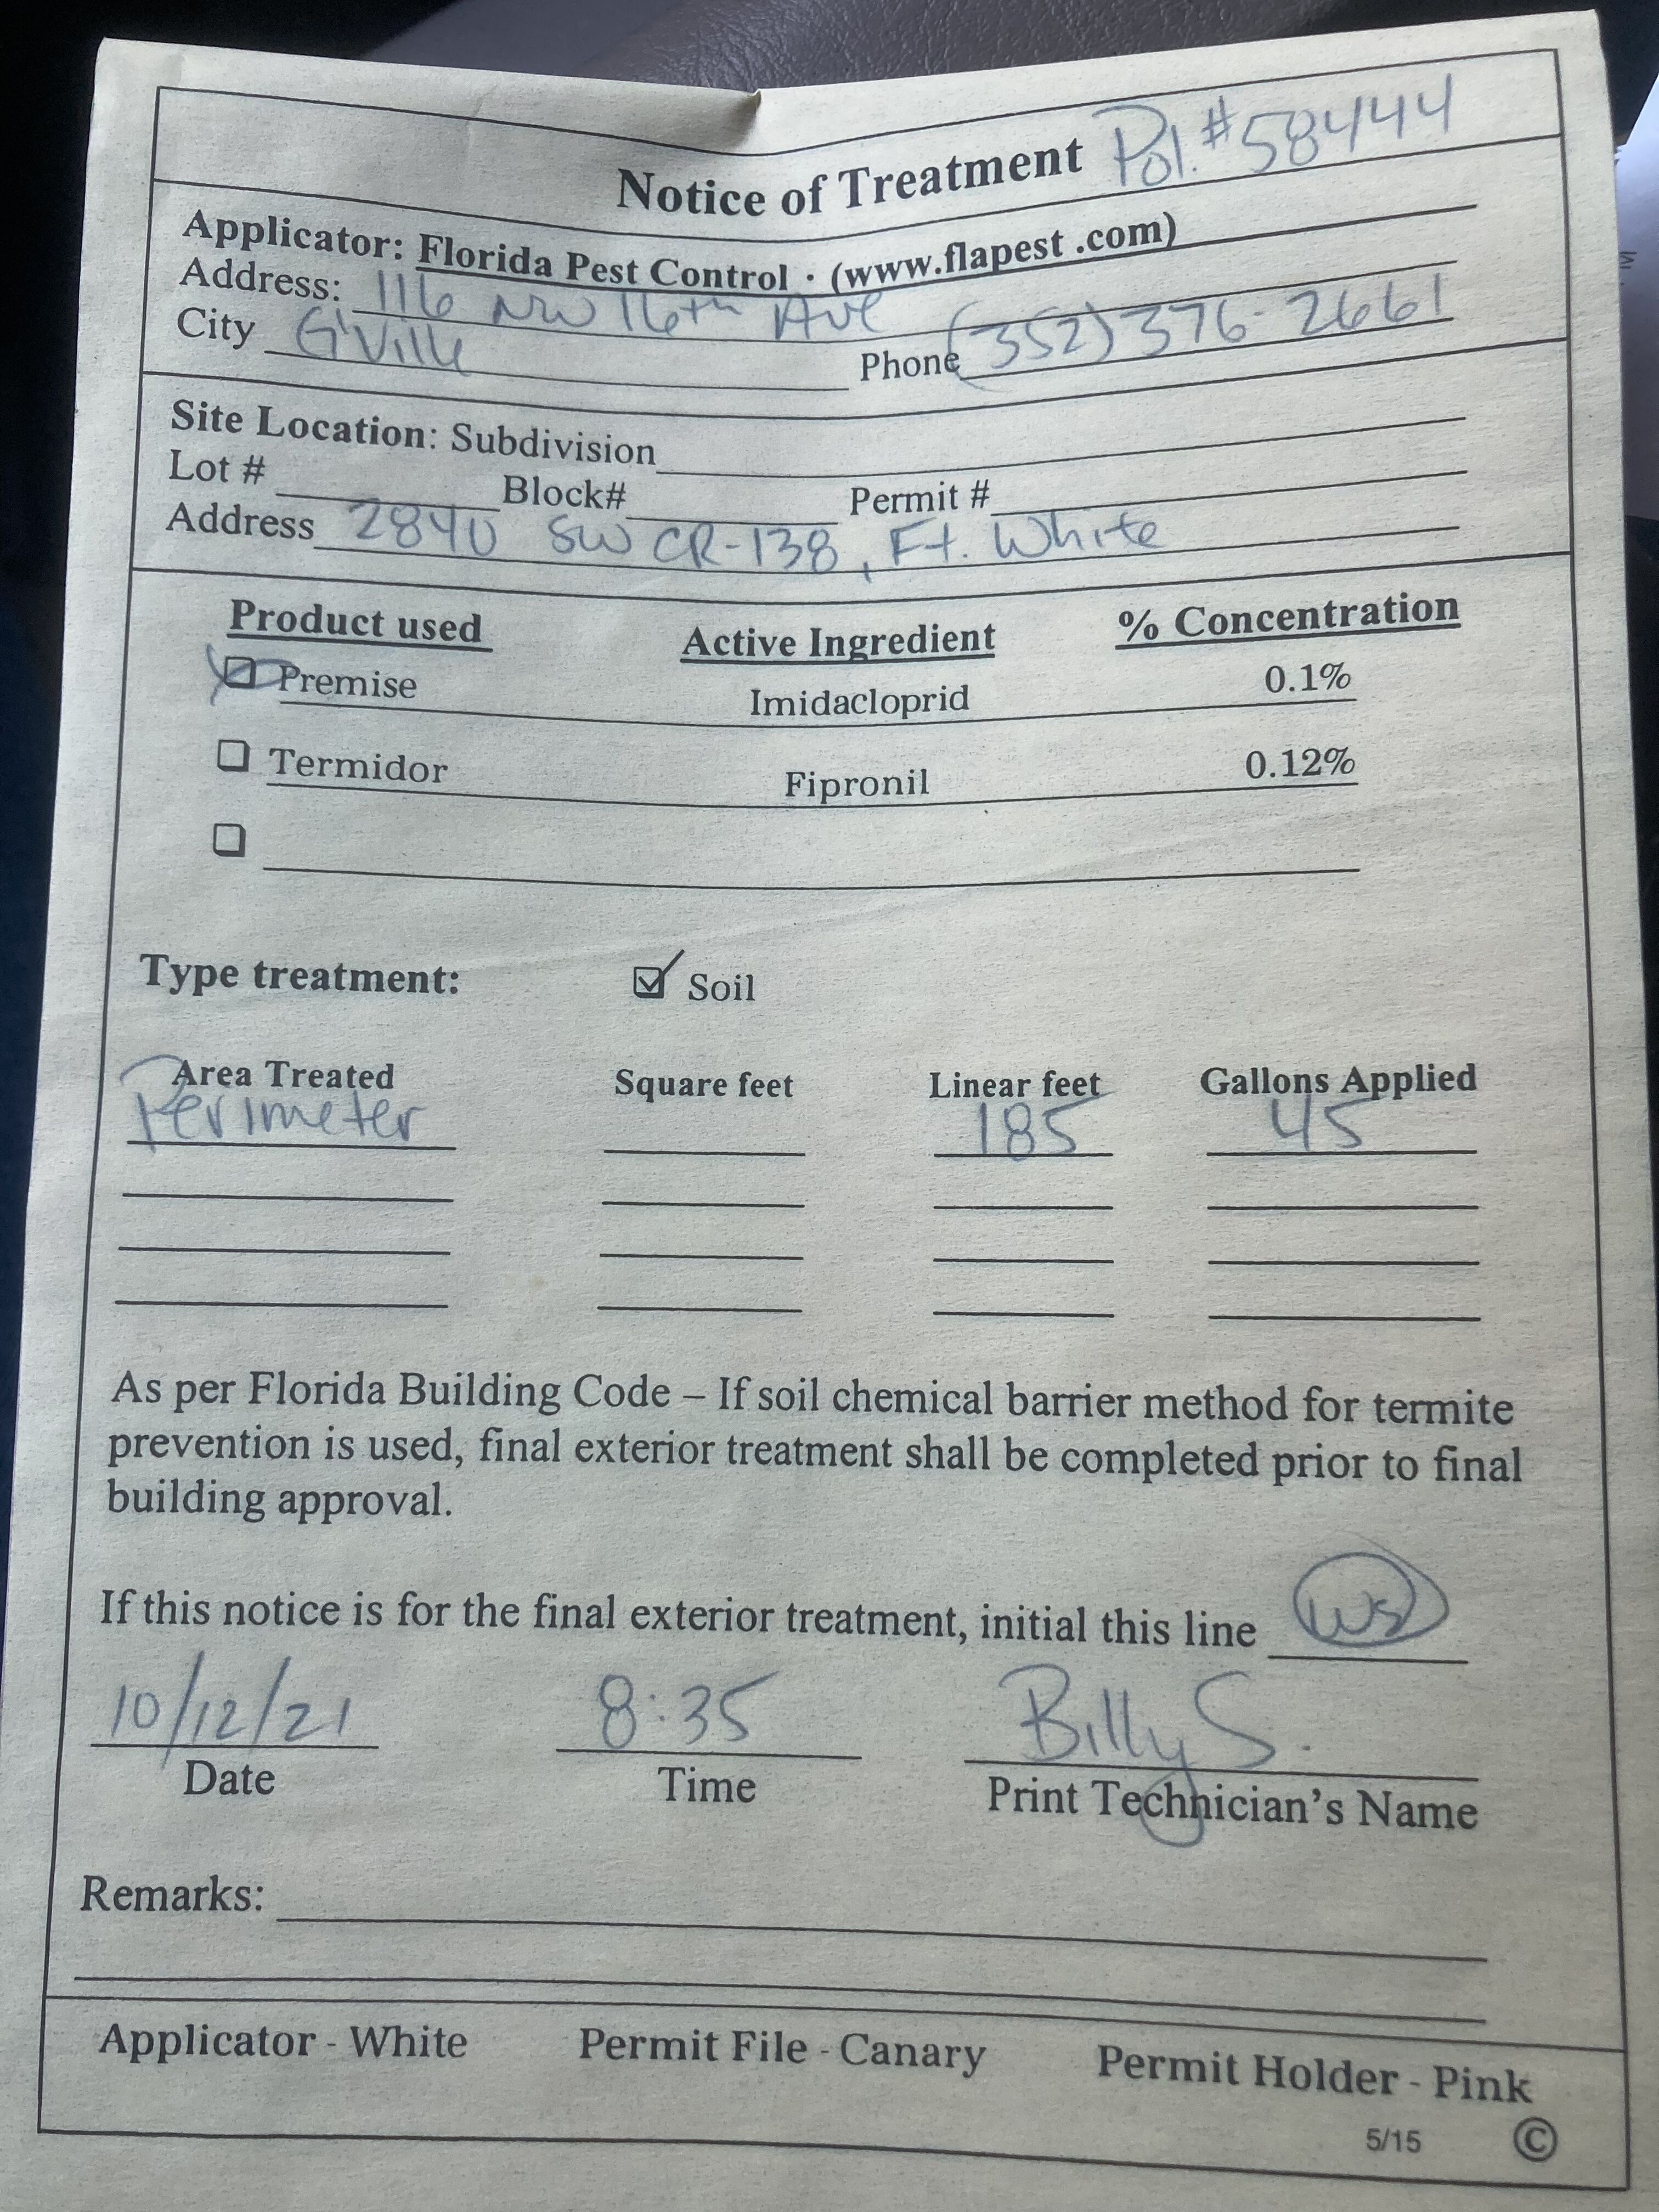 Notice of Treatment Pol.#58444
Applicator: Florida Pest Control · (www.flapest .com)
Address: 116 NW 16th Ave
City G'Ville Phone (352) 376-2661
Site Location: Subdivision
Lot # Block# Permit #
Address 2840 SW CR-138, Ft. White
Product used Active Ingredient % Concentration
Premise Imidacloprid 0.1%
Termidor Fipronil 0.12%
Type treatment: Soil
Area Treated Square feet Linear feet Gallons Applied
Perimeter 185 45
As per Florida Building Code – If soil chemical barrier method for termite
prevention is used, final exterior treatment shall be completed prior to final
building approval.
If this notice is for the final exterior treatment, initial this line WS
10/12/21 8:35 Billy S.
Date Time Print Technician's Name
Remarks:
Applicator - White Permit File - Canary Permit Holder - Pink
5/15 ©